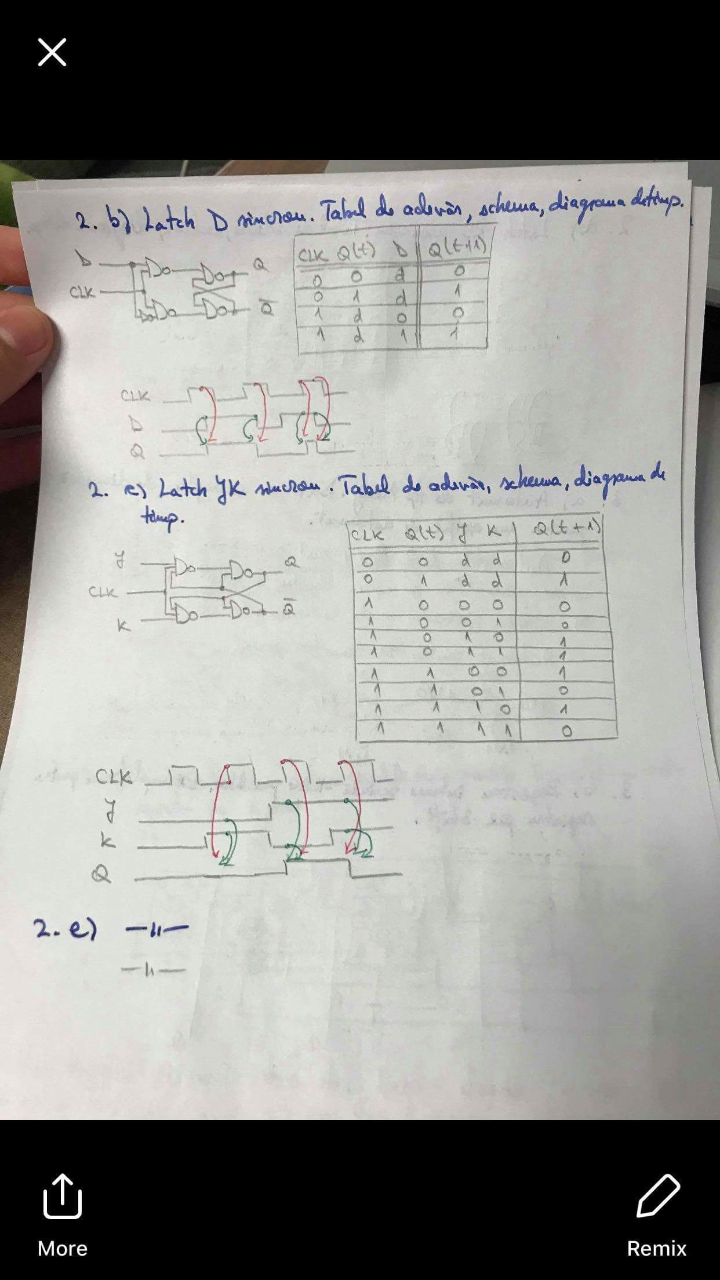 2. b) Latch D sincron. Tabel de adevăr, schema, diagrama de timp.
D
CLK
Q
Q̅
CLK Q(t) D Q(t+1)
0 0 d 0
0 1 d 1
1 d 0 0
1 d 1 1
CLK
D
Q
2. c) Latch JK sincron. Tabel de adevăr, schema, diagrama de
timp.
J
CLK
K
Q
Q̅
CLK Q(t) J K Q(t+1)
0 0 d d 0
0 1 d d 1
1 0 0 0 0
1 0 0 1 0
1 0 1 0 1
1 0 1 1 1
1 1 0 0 1
1 1 0 1 0
1 1 1 0 1
1 1 1 1 0
CLK
J
K
Q
2. e) —〃—
—〃—
More
Remix